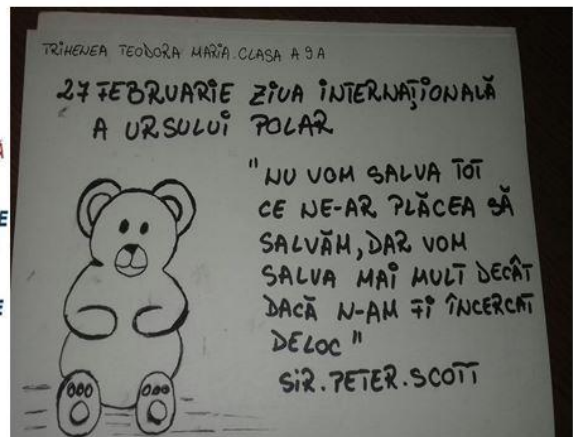 TRIHENEA TEODORA MARIA.CLASA A 9 A
27 FEBRUARIE ZIUA INTERNAȚIONALĂ
A URSULUI POLAR
"NU VOM SALVA TOT
CE NE-AR PLĂCEA SĂ
SALVĂM, DAR VOM
SALVA MAI MULT DECÂT
DACĂ N-AM FI ÎNCERCAT
DELOC"
SIR.PETER.SCOTT